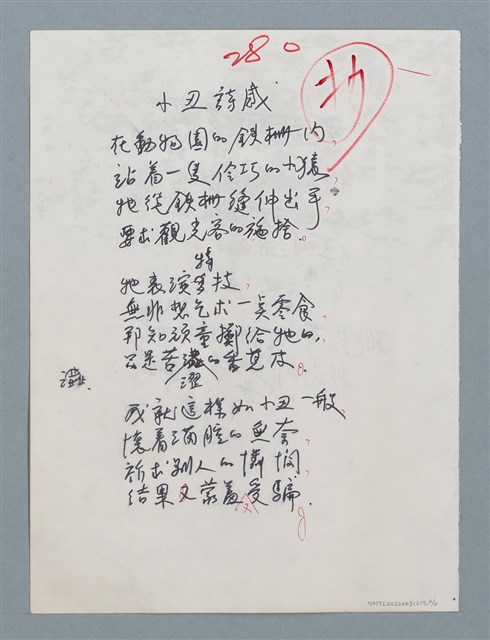 280
抄
小丑詩感
在動物園的鉄柵內,
站着一隻伶巧的小猿,
牠從鉄柵縫伸出手,
要求觀光客的施捨。
牠表演特技,
無非想乞求一点零食,
那知頑童擲給牠的,
只是苦澀的香蕉皮。
澀
我就這樣如小丑一般,
懷着滿腔的無奈,
祈求別人的憐憫,
結果又蒙羞受騙。
NMTL20220031